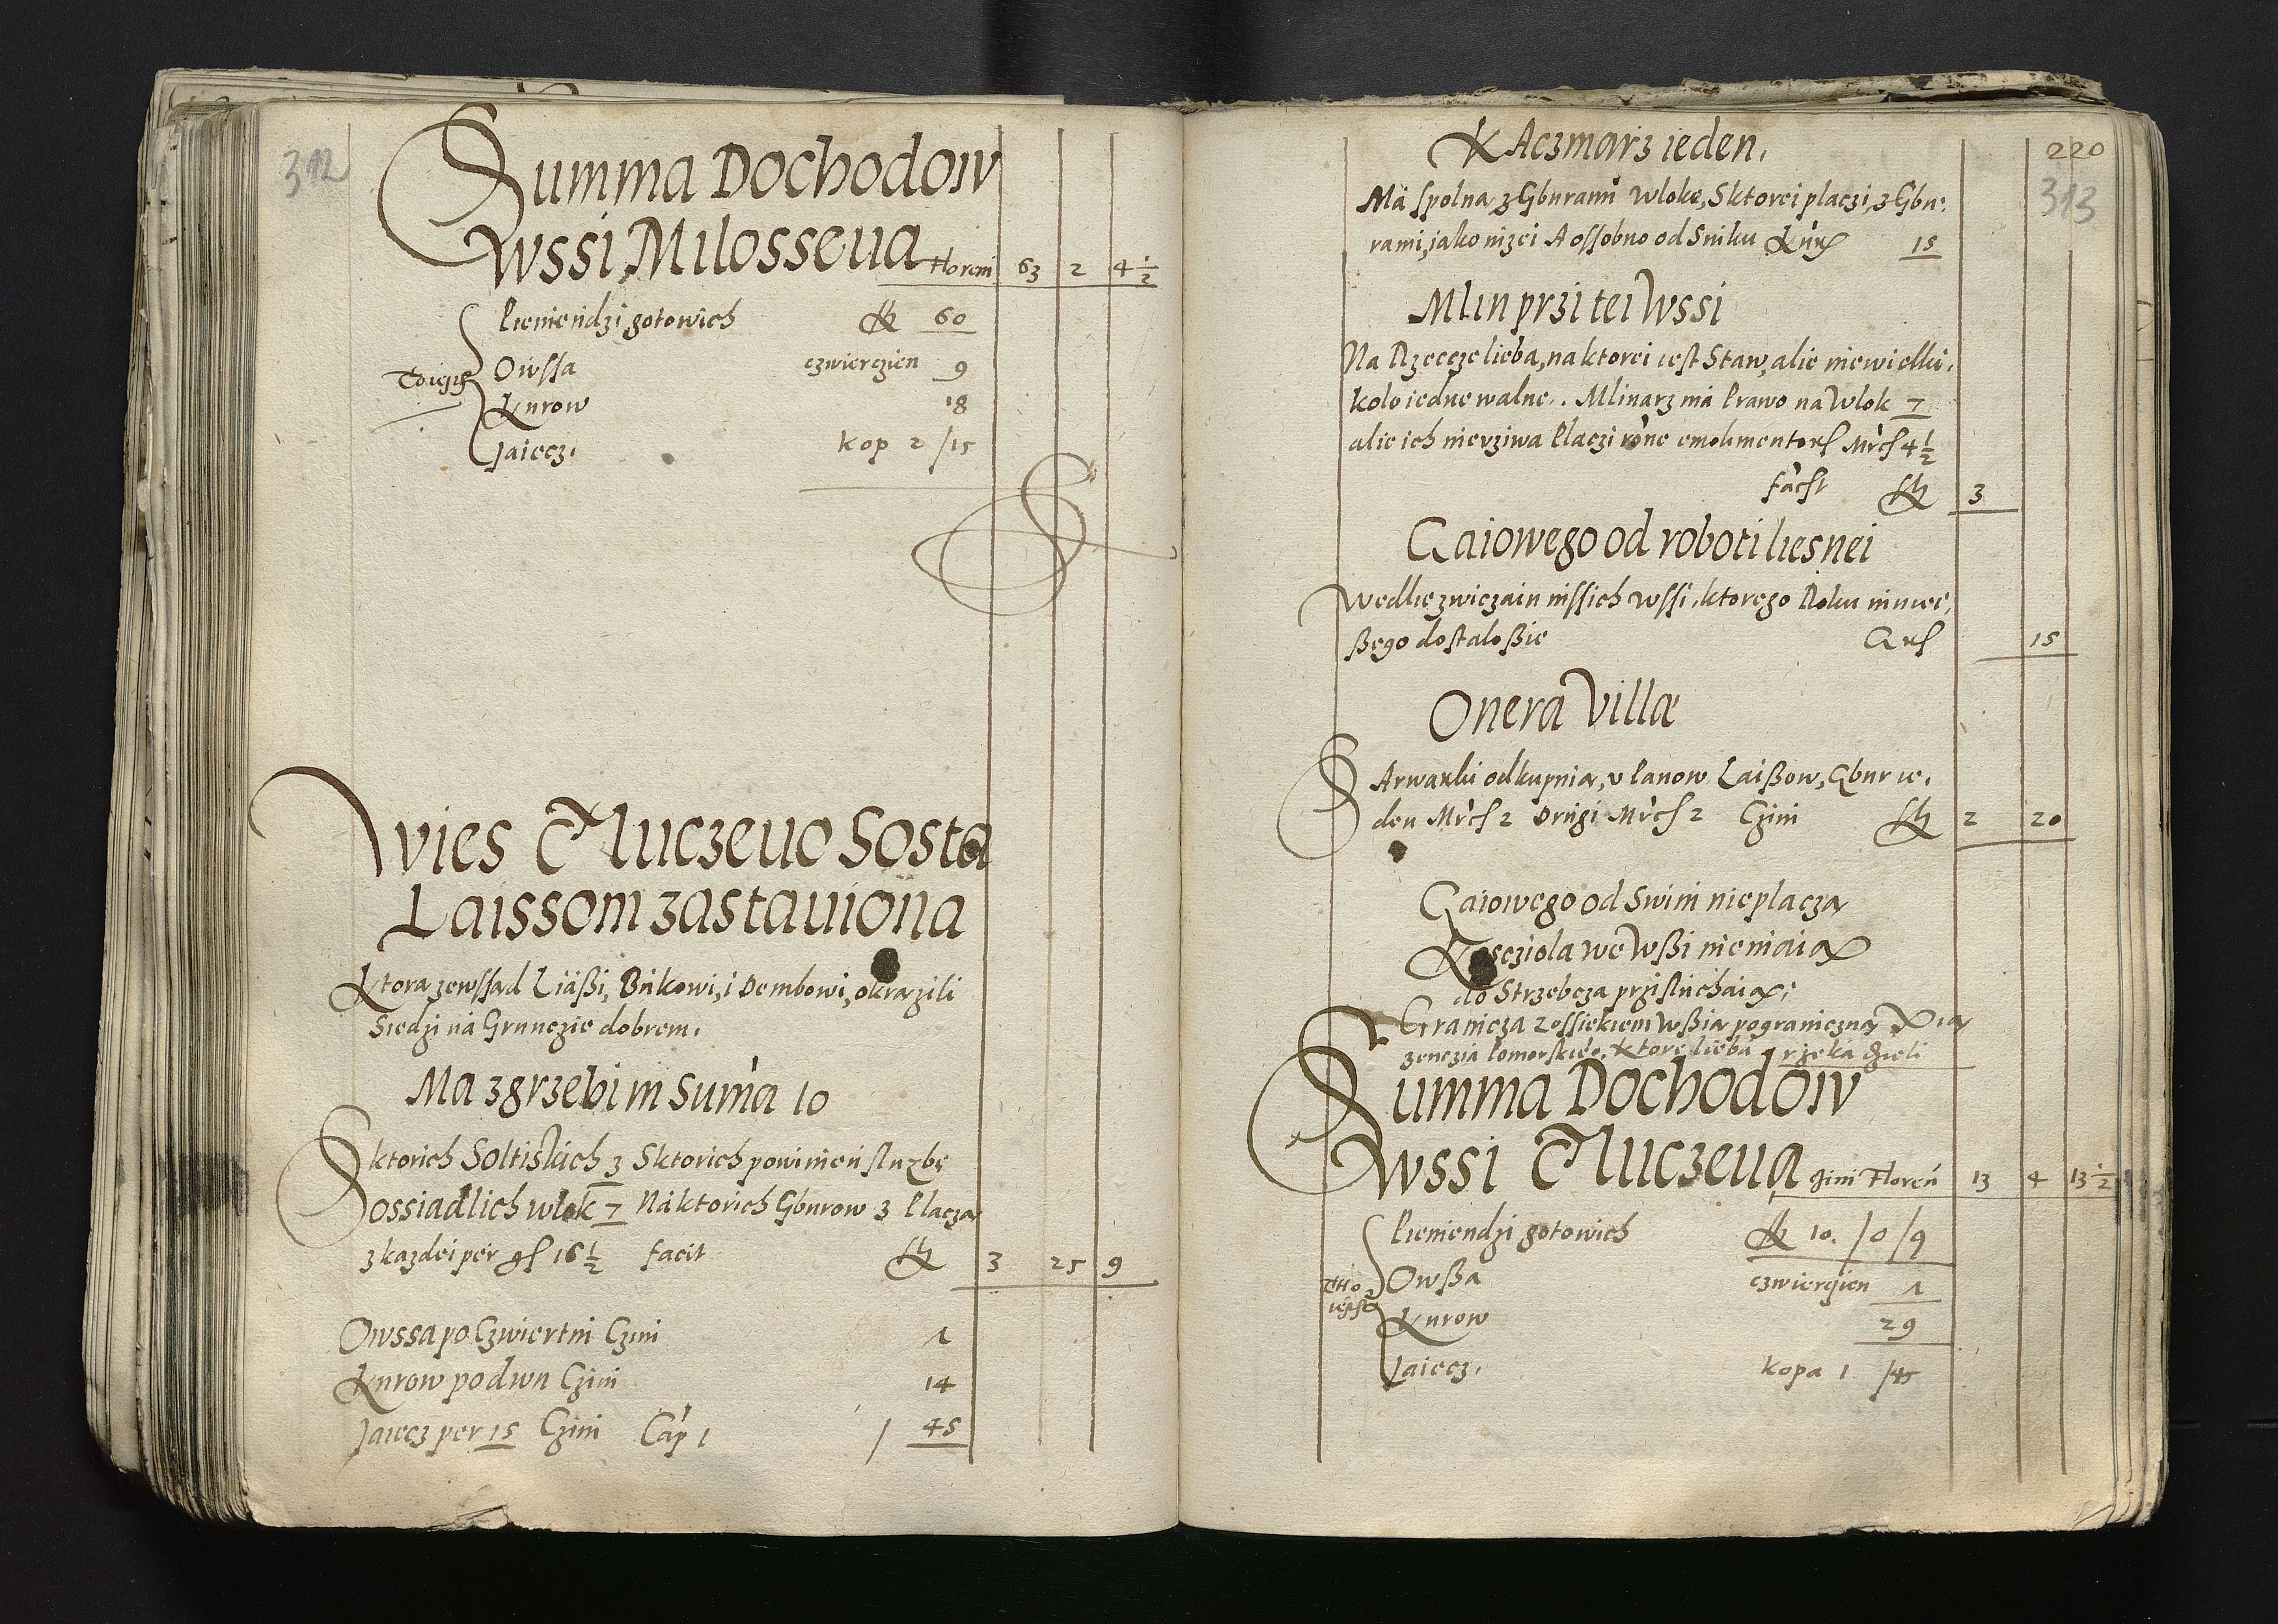 312
Summa Dochodow
wssi Milosseua Floreni 63 2 4 1/2
Pieniendzi gotowich fl 60
Owssa czwierczien 9
Kurow 18
Jaiecz. kop 2 /15
Wies Tluczeuo Sosta
Laissom zastauiona
Ktora zewssad Liäßi, Bukowi, i Dembowi, okrazili
Siedzi na Grunczie dobrem.
Ma zgrzebi m Suma 10
S ktorich Soltiskich 3 Sktorich powinien sluzbe
ossiadlich wlok 7 Na ktorich Gburow 3 Placza
z kazdei per gs 16 1/2 facit fl 3 25 9
Owssa po Czwiertni Czini 1
Kurow po dwu Czini 14
Jaiecz per 15 Czini Cap 1 / 45
220
313
KAczmarz ieden.
Ma spolna z Gburami Wloke, Sktorei placzi, z Gbu:
rami, jako nizei A ossobno od Sniku Kur 15
Mlin przi tei Wssi
Na Rzecze lieba, na ktorei iest Staw, alie niewielki.
kolo iedne walne. Mlinarz ma Prawo na Wlok 7
alie ich nierziwa Placzi rone emolimentors Mrcs 4 1/2
facst fl 3
Gaiowego od roboti liesnei
Wedlie zwiczaiu inssich wssi, ktorego Roku niniee,
ßego dostalo ßie Grs 15
Onera Villæ
SArwarki odkupuia, v Panow Laißow, Gbur ie.
den Mrcs 2 Drugi Mrcs 2 Czini fl 2 20
Gaiowego od Swini nie placza
Kosciola we Wßi nie maia
do Strzebcza przisluchaia;
Granicza z ossiekiem Wßia pograniczna Xia
zenczia Pomorskieo. Ktore lieba rzeka dzieli
Summa Dochodow
wssi Tluczeua Czini Floren 13 4 13 1/2
Pieniendzi gotowich fl 10. /0 /9
Owßa czwierczien 1
Kurow 29
Jaiecz. kopa 1 /45